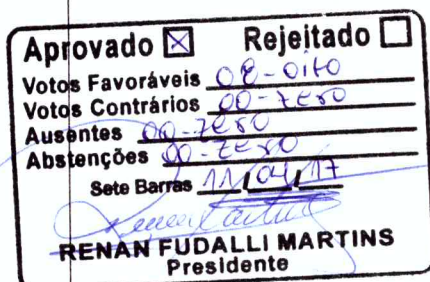 Aprovado ☒ Rejeitado ☐
Votos Favoráveis 08-OITO
Votos Contrários 00-ZERO
Ausentes 00-ZERO
Abstenções 00-ZERO
Sete Barras 11/04/17
RENAN FUDALLI MARTINS
Presidente